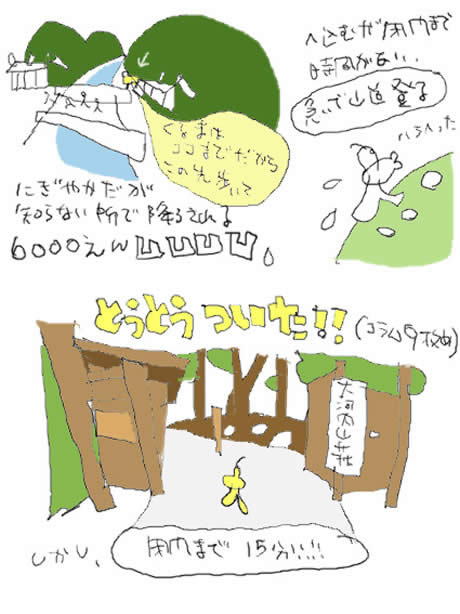 くるまは
ココまでだから
この先歩いて
にぎやかだが
知らない所で降ろされる
6000えんんんんん。
へ込むが閉門まで
時間がない、
急いで山道登る
ハラへった
とうとうついた!!
(コラム9枚め)
大河内山荘
しかし、
閉門まで15分!!!